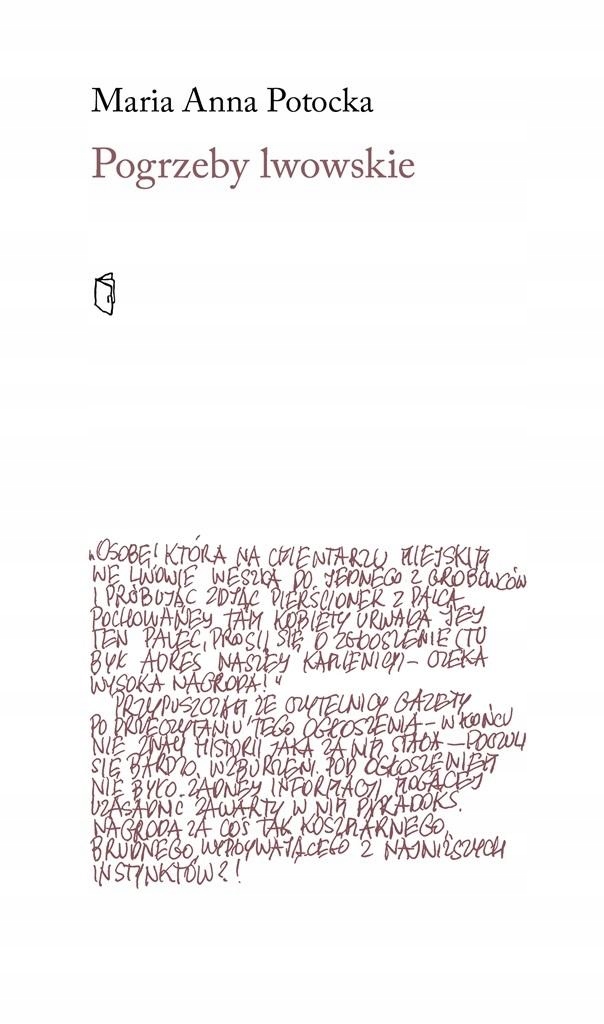 Maria Anna Potocka
Pogrzeby lwowskie
„OSOBĘ, KTÓRA NA CMENTARZU MIEJSKIM
WE LWOWIE WESZŁA DO JEDNEGO Z GROBOWCÓW
I PRÓBUJĄC ZDJĄĆ PIERŚCIONEK Z PALCA
POCHOWANEJ TAM KOBIETY URWAŁA JEJ
TEN PALEC, PROSI SIĘ O ZGŁOSZENIE (TU
BYŁ ADRES NASZEJ KAMIENICY) – CZEKA
WYSOKA NAGRODA!"
PRZYPUSZCZAM, ŻE CZYTELNICY GAZETY
PO PRZECZYTANIU TEGO OGŁOSZENIA – W KOŃCU
NIE ZNALI HISTORII, JAKA ZA NIM STAŁA – POCZULI
SIĘ BARDZO WZBURZENI. POD OGŁOSZENIEM
NIE BYŁO ŻADNEJ INFORMACJI MOGĄCEJ
UZASADNIĆ ZAWARTY W NIM PARADOKS.
NAGRODA ZA COŚ TAK KOSZMARNEGO,
BRUDNEGO, WYPŁYWAJĄCEGO Z NAJNIŻSZYCH
INSTYNKTÓW?!